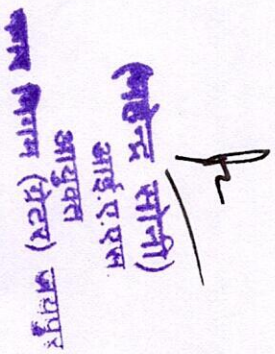 (महेन्द्र सोनी)
आई.ए.एस
आयुक्त
नगर निगम (ग्रेटर) जयपुर